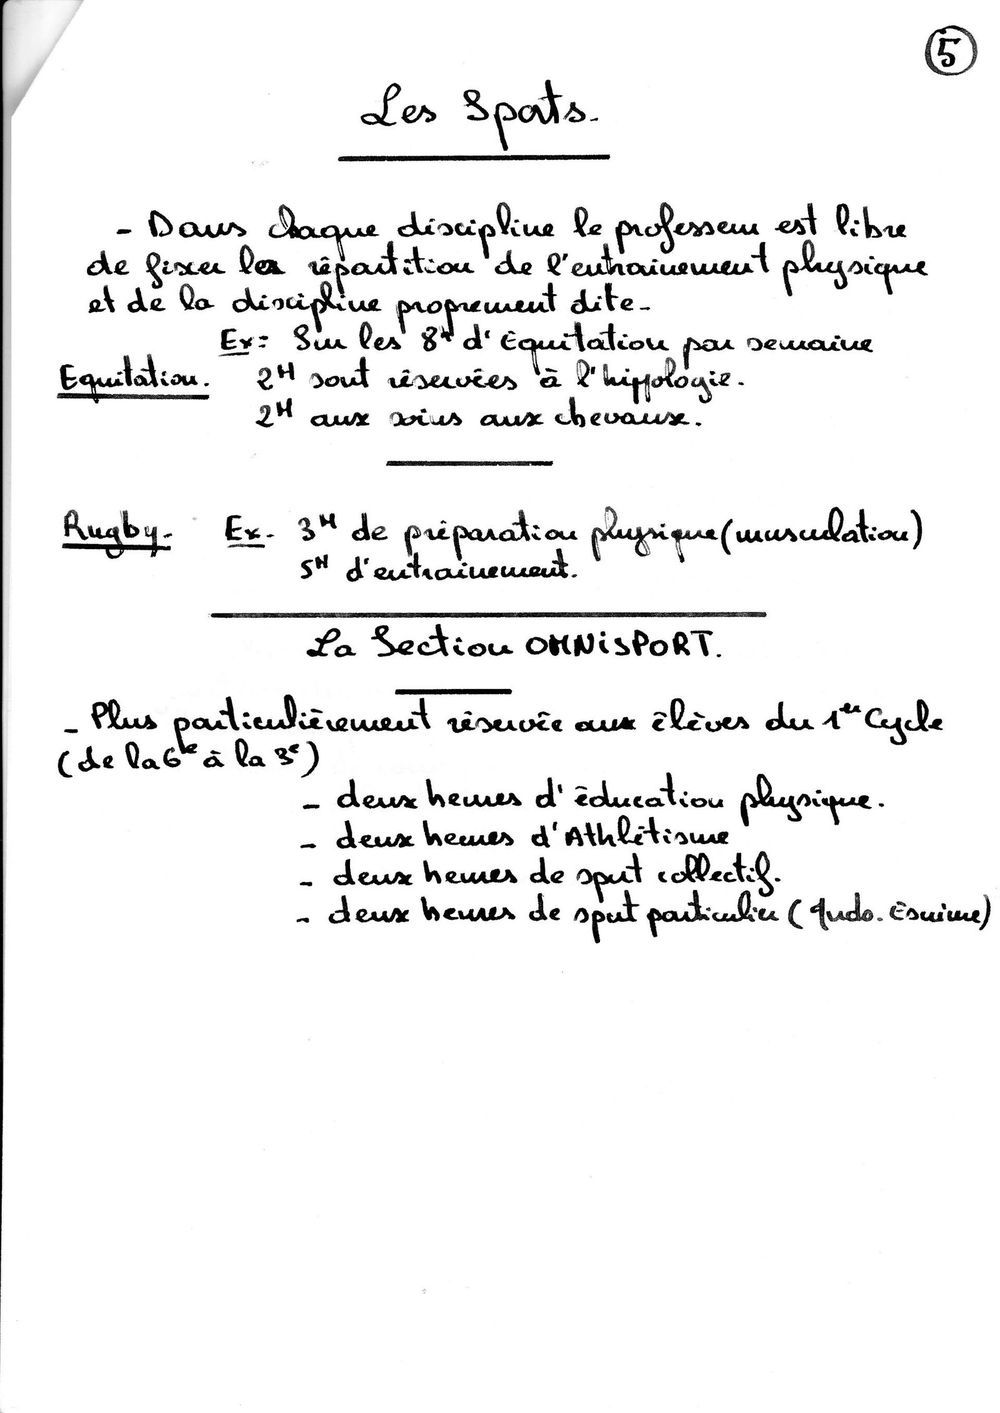 5
Les Sports.
- Dans chaque discipline le professeur est libre
de fixer la répartition de l'entrainement physique
et de la discipline proprement dite -
Ex: Sur les 8H d'équitation par semaine
Equitation. 2H sont réservées à l'hippologie.
2H aux soins aux chevaux.
Rugby. Ex. 3H de préparation physique (musculation)
5H d'entrainement.
La Section OMNiSPORT.
- Plus particulièrement réservée aux élèves du 1er Cycle
(de la 6e à la 3e)
- deux heures d'éducation physique.
- deux heures d'Athlétisme
- deux heures de sport collectif.
- deux heures de sport particulier (Judo. Escrime)